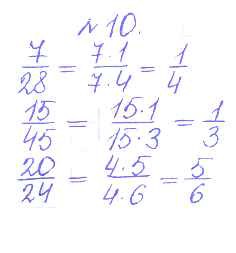 №10.
7/28 = 7·1/7·4 = 1/4
15/45 = 15·1/15·3 = 1/3
20/24 = 4·5/4·6 = 5/6